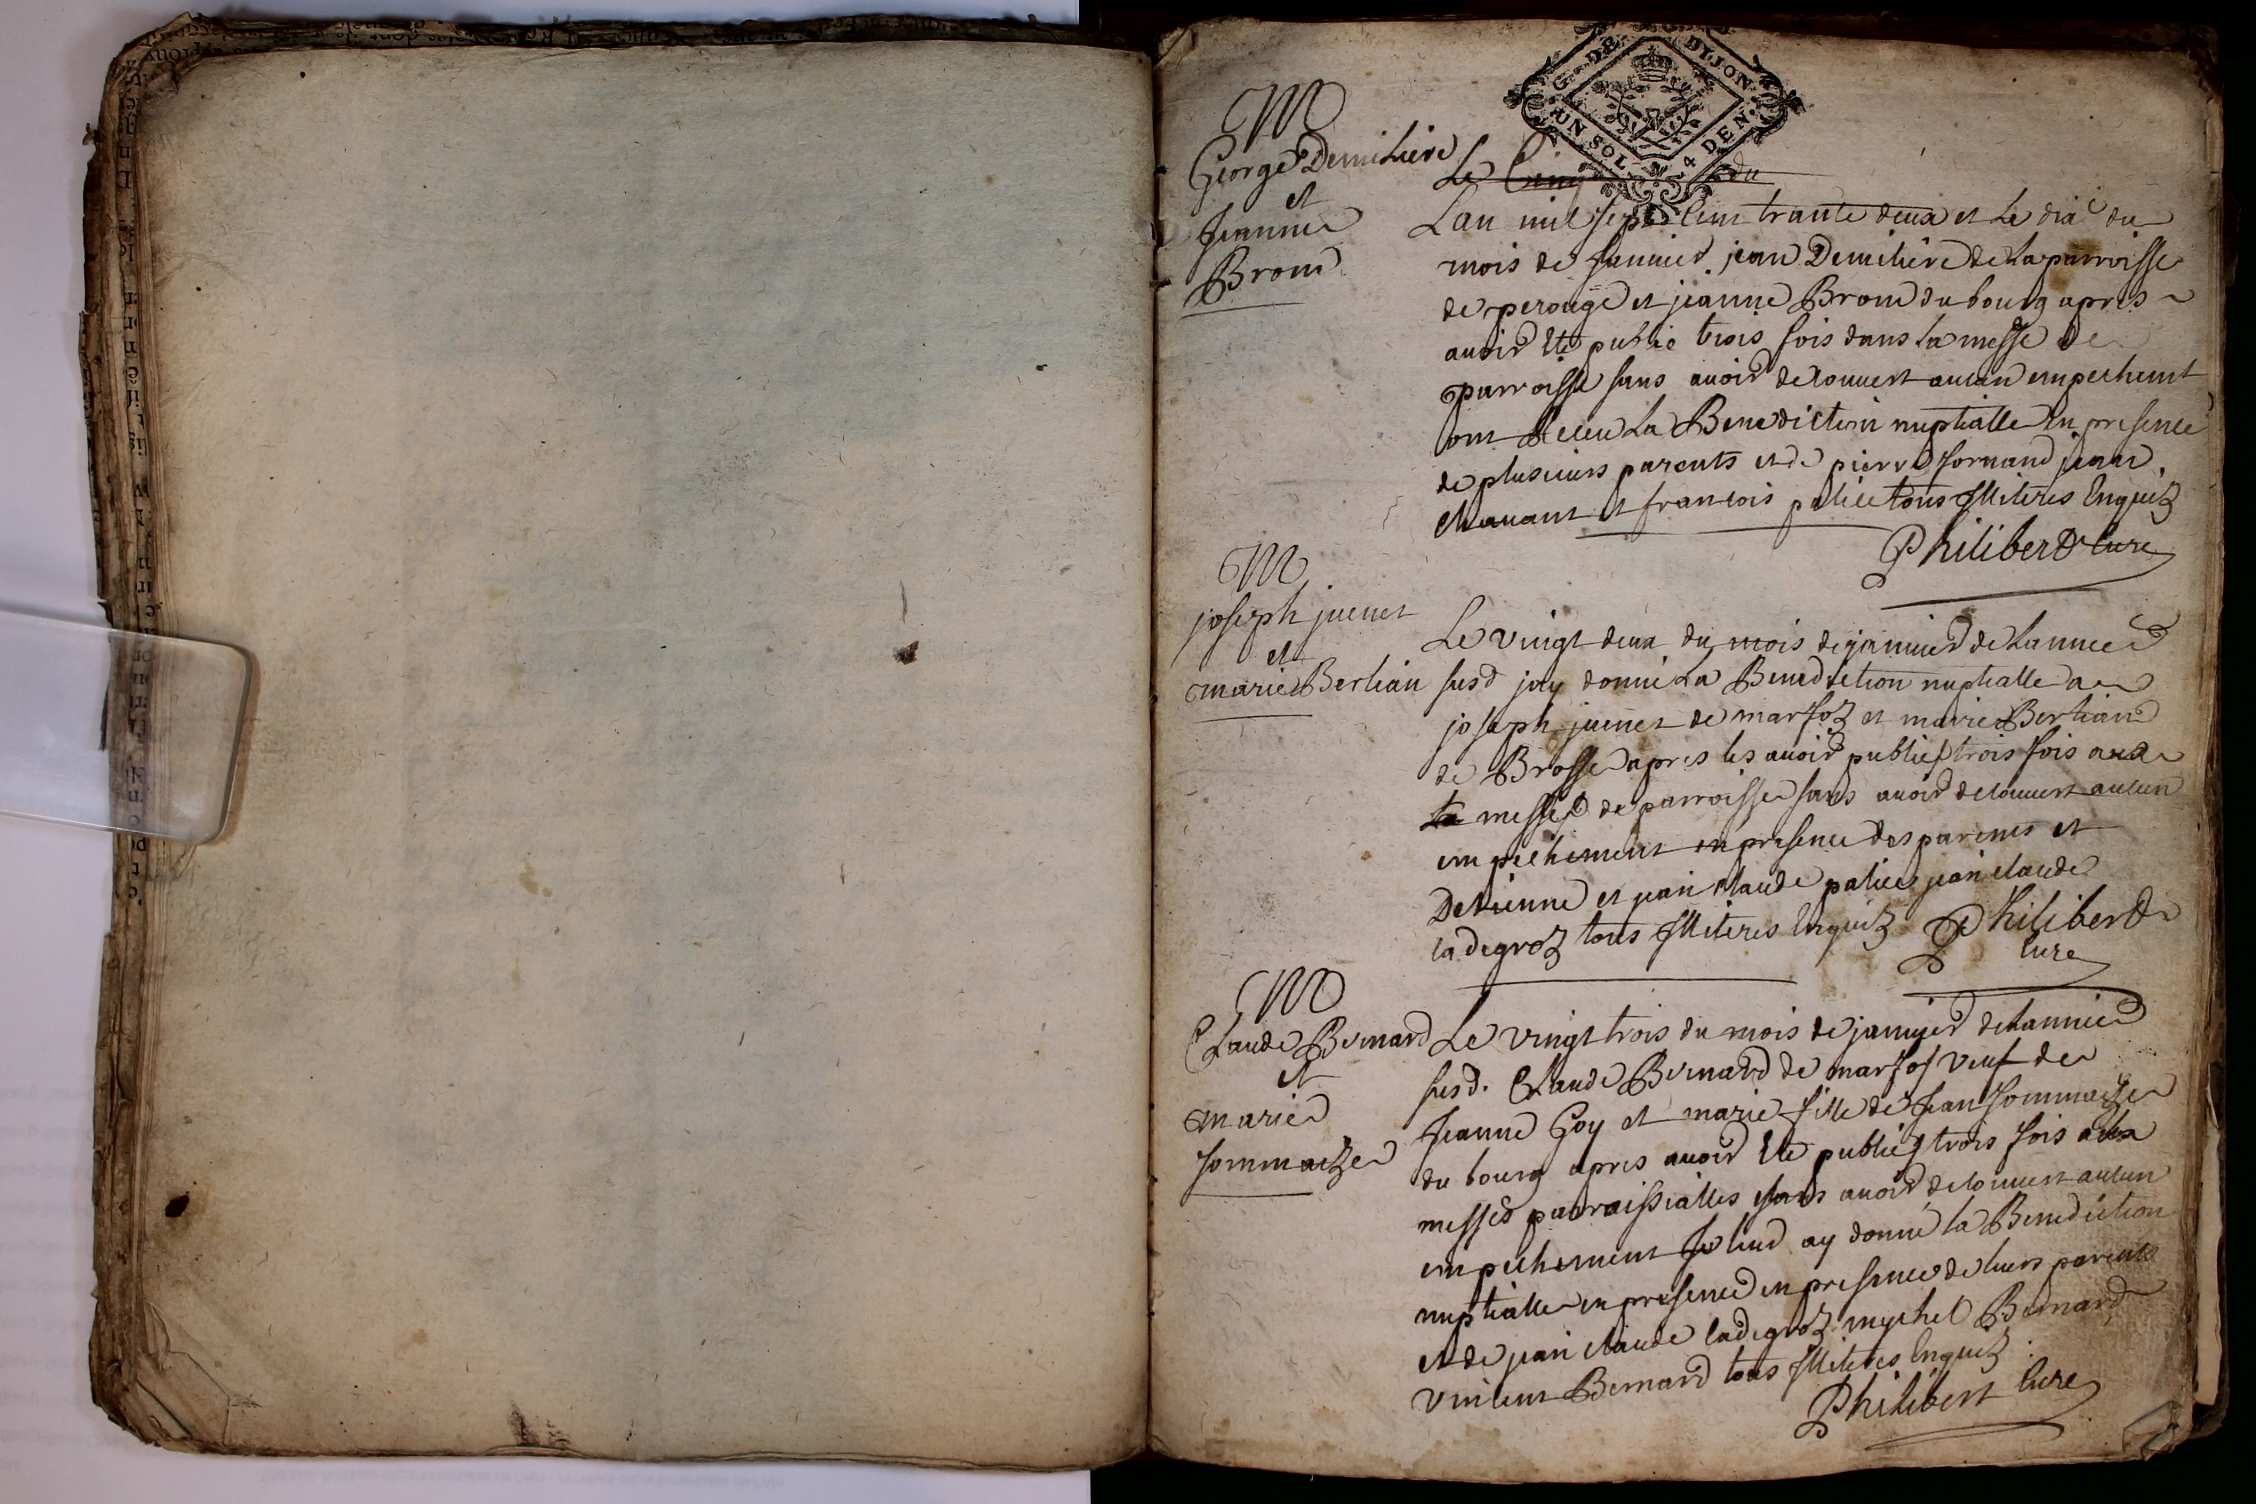 G. DE DIJON
UN SOL 4 DEN.
M
George Demiliere
et
Jeanne
Brom
Le Cinq du
Lan mil sept Cent trante deux et Le dix du
mois de Jannier jean Demiliere de La parroisse
de perouge et jeanne Brom du bourg apres
auoir Ete publie trois fois dans La messe de
parroisse sans auoir decouuert aucun empechemt
ont Receu La Benediction nuptialle En presence
de plusieurs parents et de pierre jean
Chauant et francois palice tous Illiteres Enquis
Philiberd Cure
M
joseph juenet
et
marie Berlian
Le vingt deux du mois de januier de Lannee
susd jay donné La Benediction nuptialle a
joseph juenet de marfoz et marie Berlian
de Brosse apres les auoir publies trois fois aux
La messe de parroisse sans auoir decouuert aucun
empechement en presence des parents et
Detienne et jean claude palice jean claude
cadegroz tous Illiteres Enquis Philiberd
Cure
M
Claude Bernard
et
marie
sommaize
Le vingt trois du mois de januyer de Lannee
susd. Claude Bernard de marfos veuf de
Jeanne Goy et marie fille de Jean sommaize
du bourg apres auoir Ete publies trois fois aux
messes parroissialles sans auoir decouuert aucun
empechement Je leur ay donné la Benediction
nuptialle en presence en presence de leurs parents
et de jean claude cadegroz mychel Bernard
vincent Bernard tous Illiteres Enquis
Philibert Cure